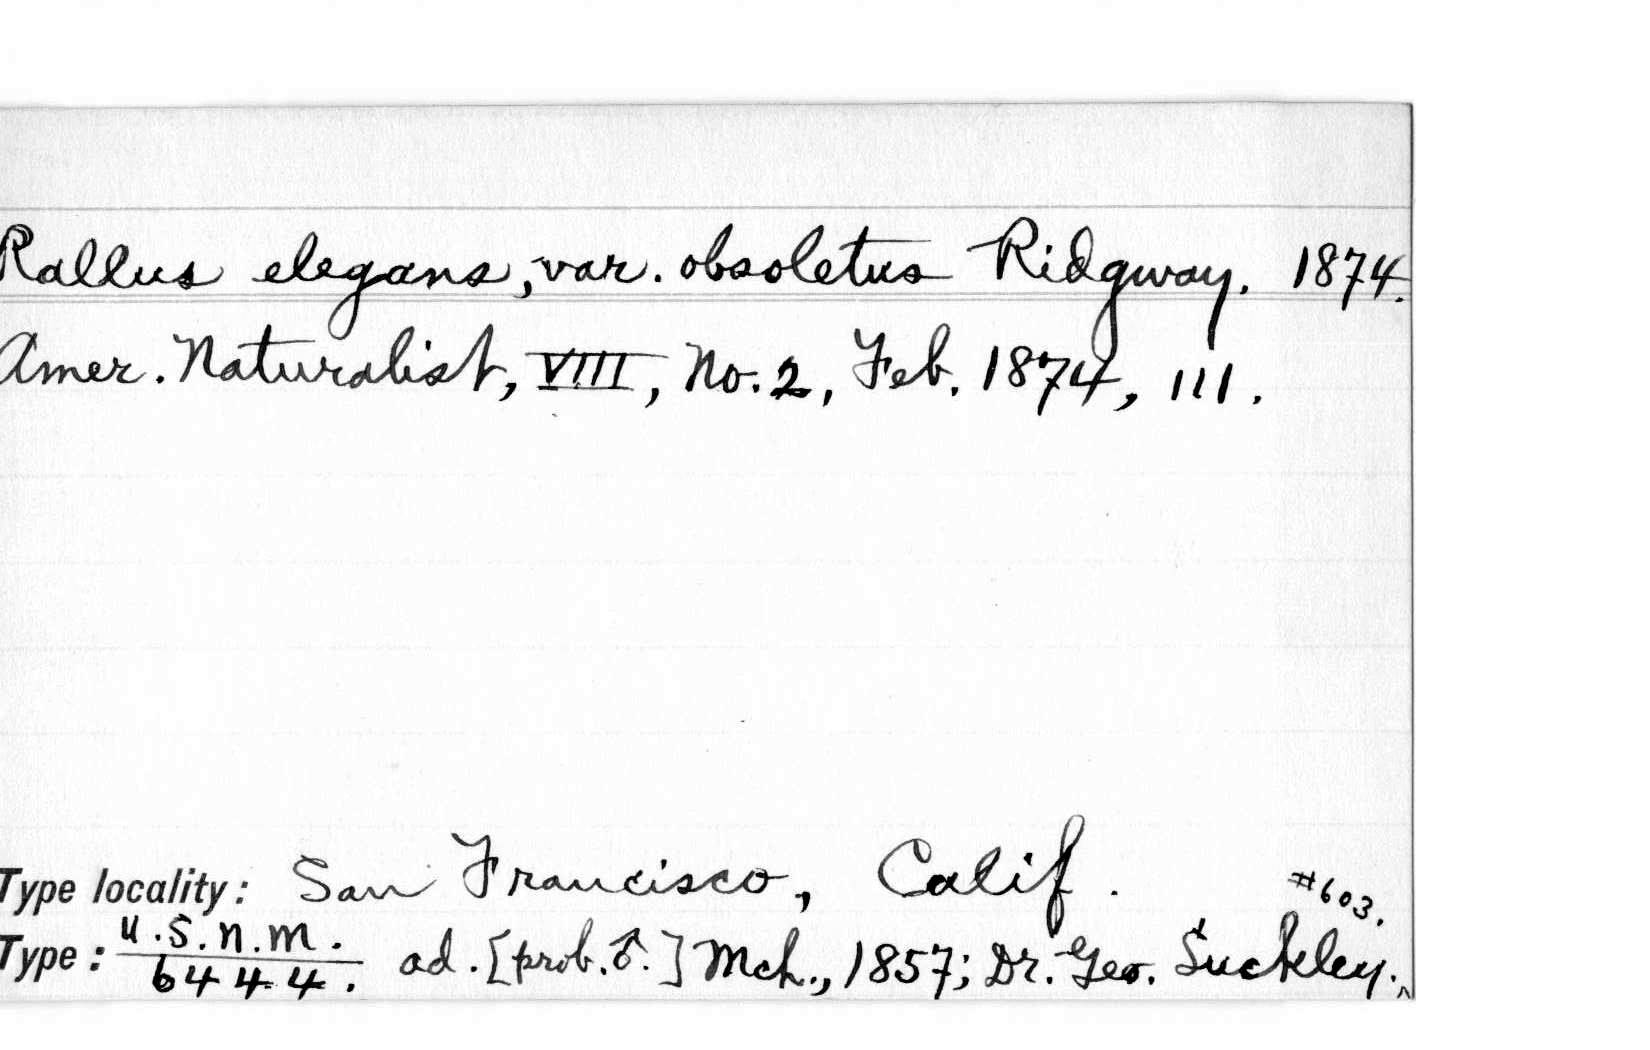 Rallus elegans, var. obsoletus Ridgway. 1874.
Amer. Naturalist, VIII, No. 2, Feb. 1874, 111.
Type locality: San Francisco, Calif.
#603.
Type: U.S.N.M. 6444. ad. [prob. ♂.] Mch., 1857; Dr. Geo. Suckley.^